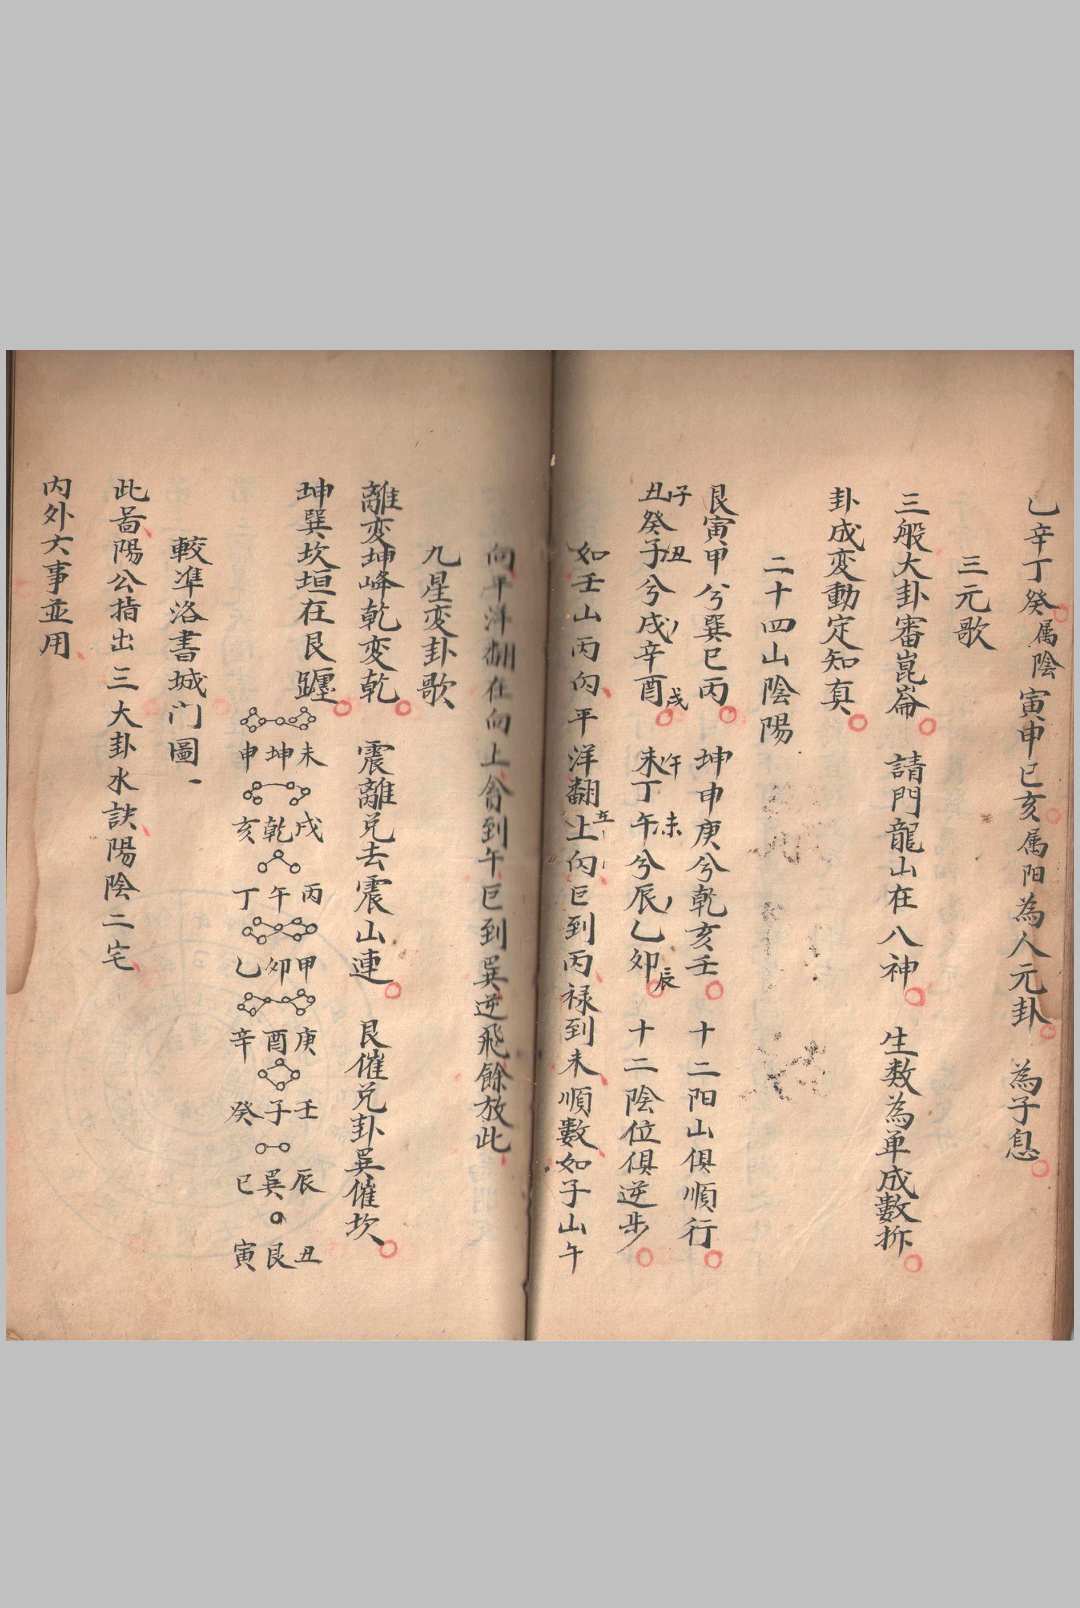 乙辛丁癸属陰寅申巳亥属阳為人元卦 為子息
三元歌
三般大卦審崑崙 請門龍山在八神 生数為单成數拆
卦成変動定知真
二十四山陰陽
艮寅甲兮巽巳丙 坤申庚兮乾亥壬 十二阳山俱順行
丑癸子兮戌辛酉 未丁午兮辰乙卯 十二陰位俱逆步
子丑 戌 午未 辰
如壬山丙向平洋翻上向巨到丙禄到未順數如子山午
向平洋翻在向上禽到午巨到巽逆飛餘放此
九星変卦歌
離变坤峰乾変乾 震離兑去震山連 艮催兑卦巽催坎
坤巽坎垣在艮躔
未坤申
戌乾亥
丙午丁
甲卯乙
庚酉辛
壬子癸
辰巽巳
丑艮寅
較準洛書城门圖
此啚陽公指出三大卦水訣陽陰二宅
内外六事並用